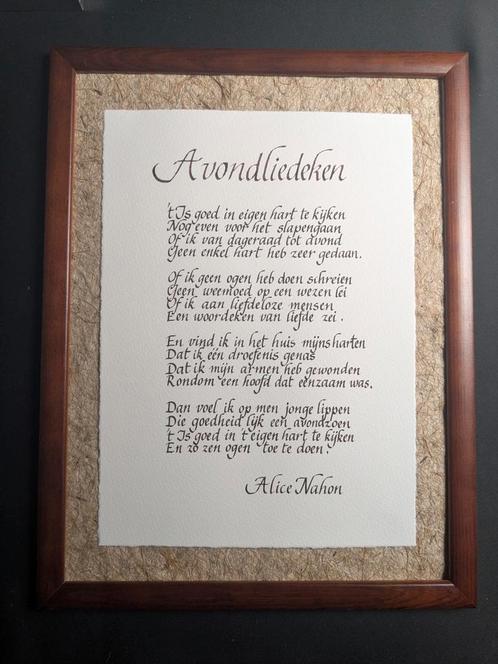 Avondliedeken
't Is goed in eigen hart te kijken
Nog even voor het slapengaan
Of ik van dageraad tot avond
Geen enkel hart heb zeer gedaan.
Of ik geen ogen heb doen schreien
Geen weemoed op een wezen lei
Of ik aan liefdeloze mensen
Een woordeken van liefde zei.
En vind ik in het huis mijns harten
Dat ik één droefenis genas
Dat ik mijn armen heb gewonden
Rondom een hoofd dat eenzaam was.
Dan voel ik op men jonge lippen
Die goedheid lijk een avondzoen
't Is goed in 't eigen hart te kijken
En zo zen ogen toe te doen.
Alice Nahon